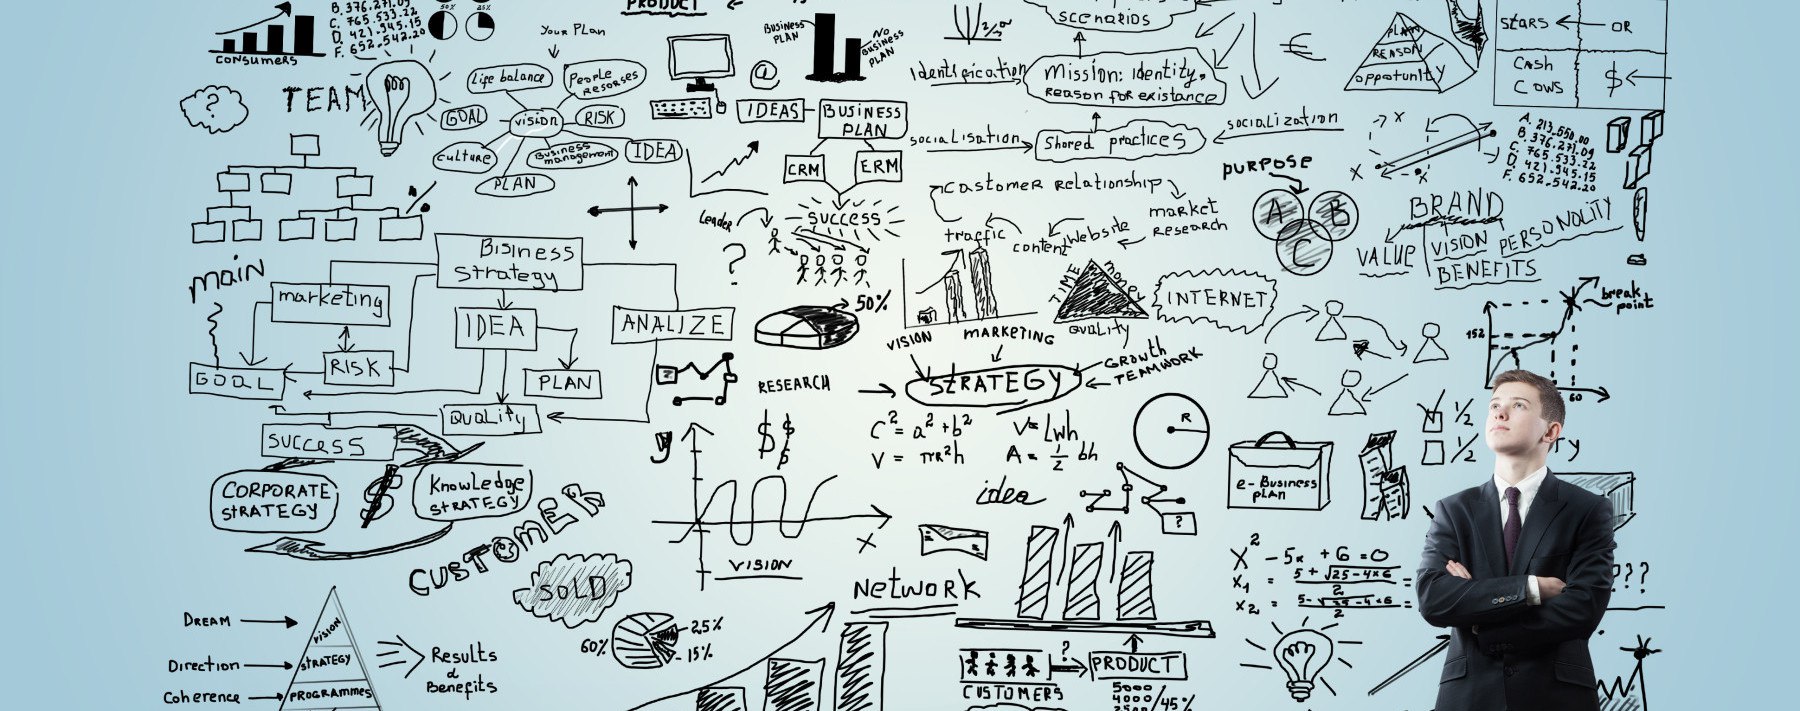 CONSUMERS
B. 376.271.09
C. 765.533.22
D. 421.945.15
F. 652.542.20
50%
25%
Your PLan
PRODUCT
BUSINESS
PLAN
NO
BUSINESS
PLAN
scenarios
PLAN
REASON
opportunity
STARS
OR
Cash
Cows
$
?
TEAM
Life balance
People
resorses
GOAL
vision
RISK
culture
Business
management
IDEA
PLAN
@
IDEAS
BUSINESS
PLAN
CRM
ERM
SUCCESS
Leader
?
Identification
Mission: Identity.
Reason for existance
€
socialisation
Shared practices
socialization
Customer Relationship
traffic
content
website
market
research
PURPOSE
A
B
C
X
X
X
A. 213.550.00
B. 376.271.09
C. 765.533.22
D. 421.945.15
F. 652.542.20
BRAND
VALUE
VISION
PERSONOLITY
BENEFITS
%
main
Bisiness
strategy
marketing
IDEA
ANALIZE
RISK
GOAL
PLAN
QUALITY
SUCCESS
50%
VISION
MARKETING
TIME
money
QUALITY
INTERNET
break
point
152
60
RESEARCH
STRATEGY
GROWTH
TEAMWORK
CORPORATE
STRATEGY
$
Knowledge
STRATEGY
CUSTOMER
$$
$
y
x
VISION
C² = a² + b²
V = Lwh
V = πR²h
A = 1/2 bh
R
idea
?
e-Business
plan
1/2
1/2
TY
X² - 5x + 6 = 0
X₁ = 5 + √25 - 4×6 =
2
X₂ =
2
???
SOLD
Network
DREAM
Direction
Coherence
VISION
STRATEGY
PROGRAMMES
Results
&
Benefits
60%
25%
15%
CUSTOMERS
?
PRODUCT
5000
4000
2500
/45%